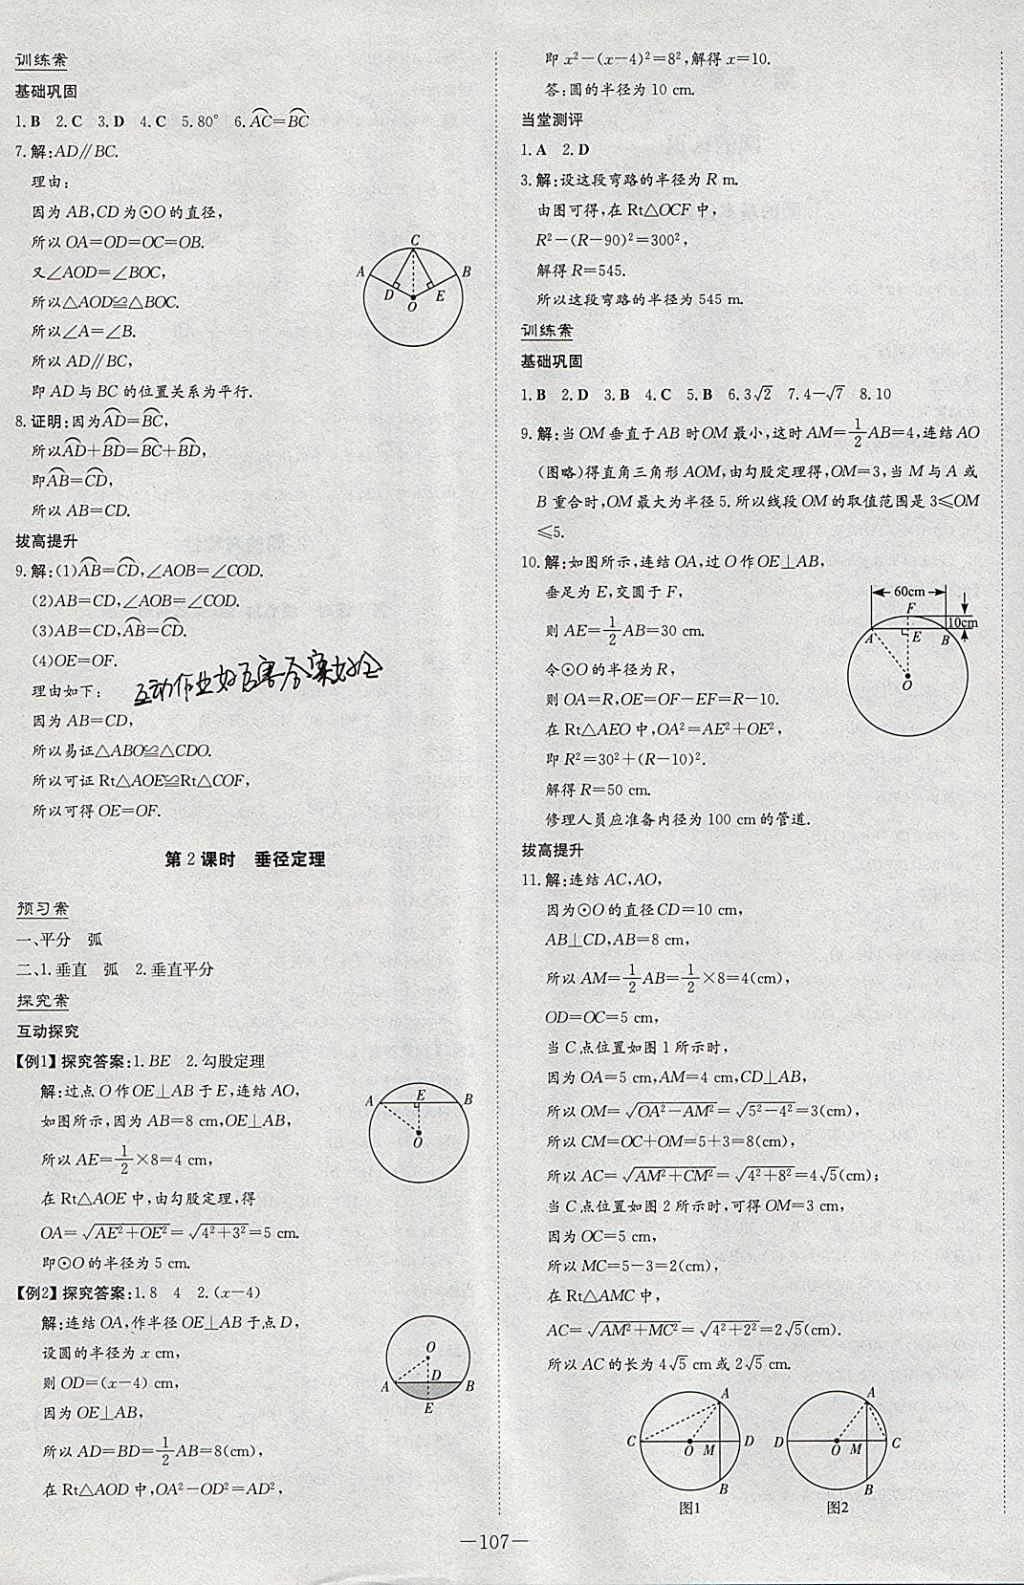 训练案
基础巩固
1.B 2.C 3.D 4.C 5.80° 6.A͡C=B͡C
7.解:AD∥BC.
理由:
因为AB,CD为⊙O的直径,
所以OA=OD=OC=OB.
又∠AOD=∠BOC,
所以△AOD≌△BOC.
所以∠A=∠B.
所以AD∥BC,
即AD与BC的位置关系为平行.
C
A
B
D
E
O
8.证明:因为A͡D=B͡C,
所以A͡D+B͡D=B͡C+B͡D,
即A͡B=C͡D,
所以AB=CD.
拔高提升
9.解:(1)A͡B=C͡D,∠AOB=∠COD.
(2)AB=CD,∠AOB=∠COD.
(3)AB=CD,A͡B=C͡D.
(4)OE=OF.
理由如下:
因为AB=CD,
所以易证△ABO≌△CDO.
所以可证Rt△AOE≌Rt△COF,
所以可得OE=OF.
第2课时 垂径定理
预习案
一、平分 弧
二、1.垂直 弧 2.垂直平分
探究案
互动探究
【例1】探究答案:1.BE 2.勾股定理
解:过点O作OE⊥AB于E,连结AO,
如图所示,因为AB=8 cm,OE⊥AB,
所以AE=1/2×8=4 cm,
在Rt△AOE中,由勾股定理,得
OA=√(AE²+OE²)=√(4²+3²)=5 cm.
即⊙O的半径为5 cm.
A
E
B
O
【例2】探究答案:1.8 4 2.(x-4)
解:连结OA,作半径OE⊥AB于点D,
设圆的半径为x cm,
则OD=(x-4) cm,
因为OE⊥AB,
所以AD=BD=1/2AB=8(cm),
在Rt△AOD中,OA²-OD²=AD²,
O
D
A
B
E
即x²-(x-4)²=8²,解得x=10.
答:圆的半径为10 cm.
当堂测评
1.A 2.D
3.解:设这段弯路的半径为R m.
由图可得,在Rt△OCF中,
R²-(R-90)²=300²,
解得R=545.
所以这段弯路的半径为545 m.
训练案
基础巩固
1.B 2.D 3.B 4.C 5.B 6.3√2 7.4-√7 8.10
9.解:当OM垂直于AB时OM最小,这时AM=1/2AB=4,连结AO
(图略)得直角三角形AOM,由勾股定理得,OM=3,当M与A或
B重合时,OM最大为半径5.所以线段OM的取值范围是3≤OM
≤5.
10.解:如图所示,连结OA,过O作OE⊥AB,
垂足为E,交圆于F,
则AE=1/2AB=30 cm.
令⊙O的半径为R,
则OA=R,OE=OF-EF=R-10.
在Rt△AEO中,OA²=AE²+OE²,
即R²=30²+(R-10)².
解得R=50 cm.
修理人员应准备内径为100 cm的管道.
60cm
F
10cm
A
E
B
O
拔高提升
11.解:连结AC,AO,
因为⊙O的直径CD=10 cm,
AB⊥CD,AB=8 cm,
所以AM=1/2AB=1/2×8=4(cm),
OD=OC=5 cm,
当C点位置如图1所示时,
因为OA=5 cm,AM=4 cm,CD⊥AB,
所以OM=√(OA²-AM²)=√(5²-4²)=3(cm),
所以CM=OC+OM=5+3=8(cm),
所以AC=√(AM²+CM²)=√(4²+8²)=4√5(cm);
当C点位置如图2所示时,可得OM=3 cm,
因为OC=5 cm,
所以MC=5-3=2(cm),
在Rt△AMC中,
AC=√(AM²+MC²)=√(4²+2²)=2√5(cm).
所以AC的长为4√5 cm或2√5 cm.
A
C
O
M
D
B
图1
A
D
O
M
C
B
图2
—107—